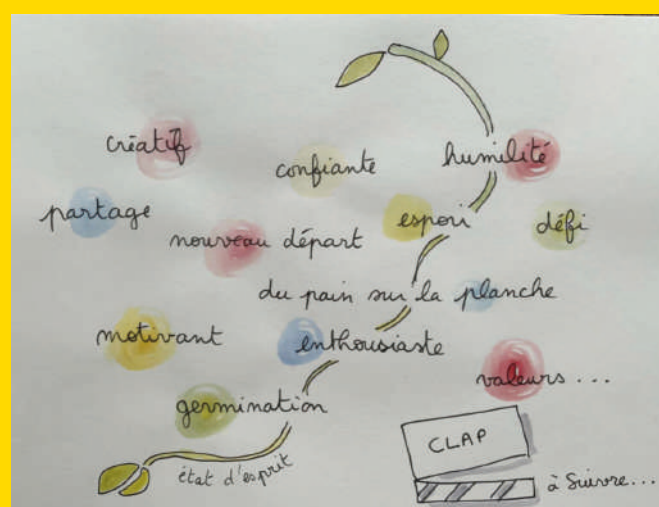 créatif
confiante
humilité
partage
espori
défi
nouveau départ
du pain sur la planche
motivant
enthousiaste
valeurs ...
germination
état d'esprit
CLAP
à Suivre...